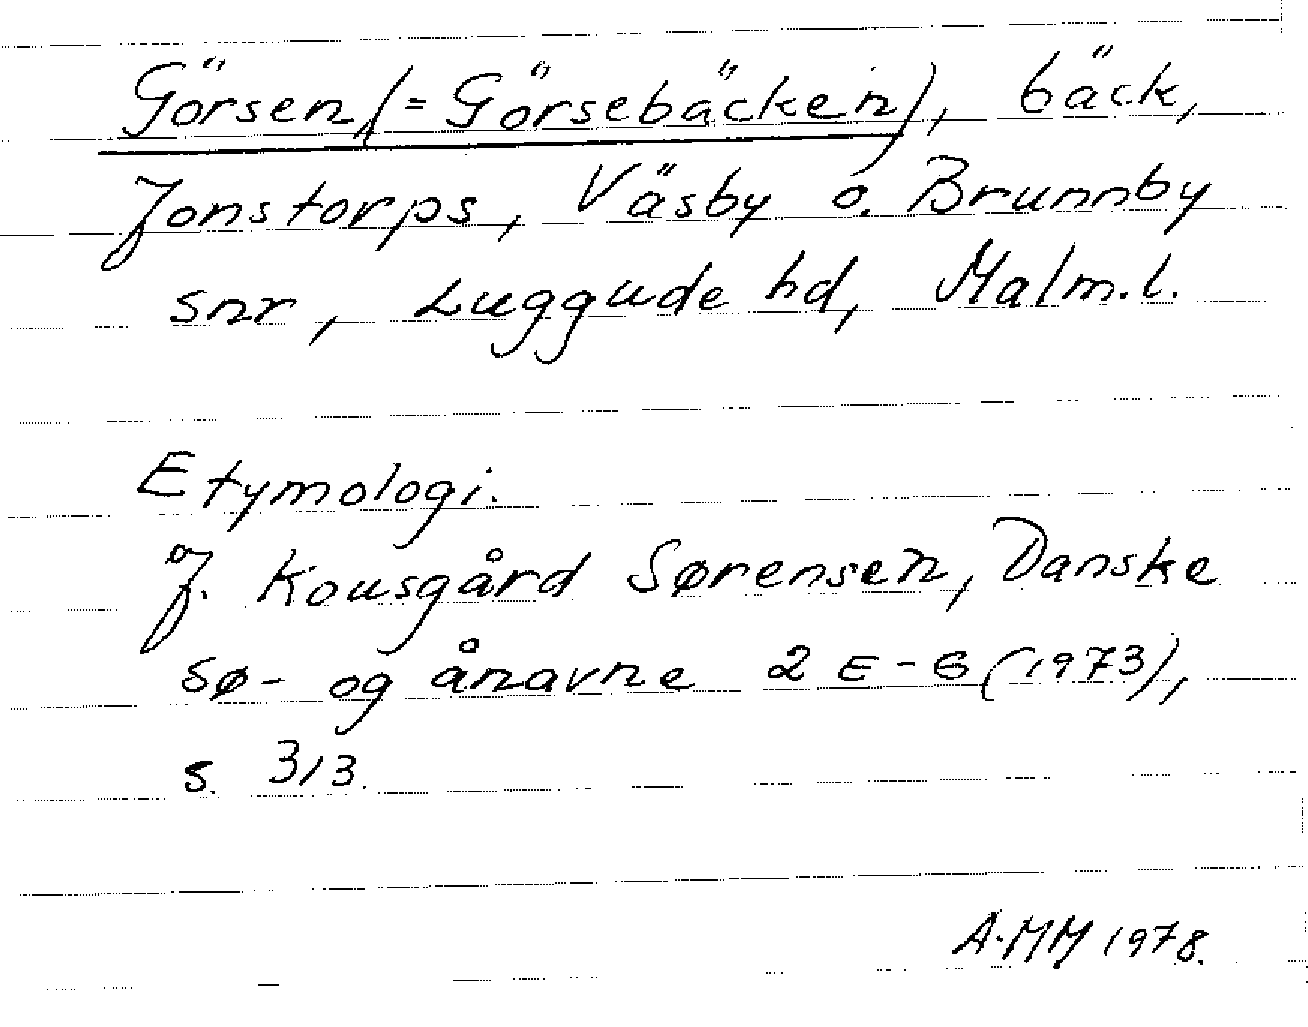 Görsen (= Görsebäcken), bäck,
Jonstorps, Väsby o. Brunnby
snr, Luggude hd, Malm.l.
Etymologi.
J. Kousgård Sørensen, Danske
sø- og ånavne 2 E-G (1973),
s. 313.
A-MM 1978.